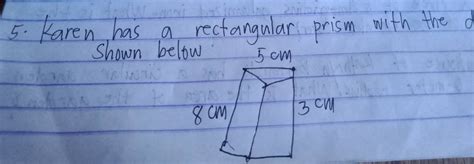 5. Karen has a rectangular prism with the d
shown below
5 cm
8 cm
3 cm